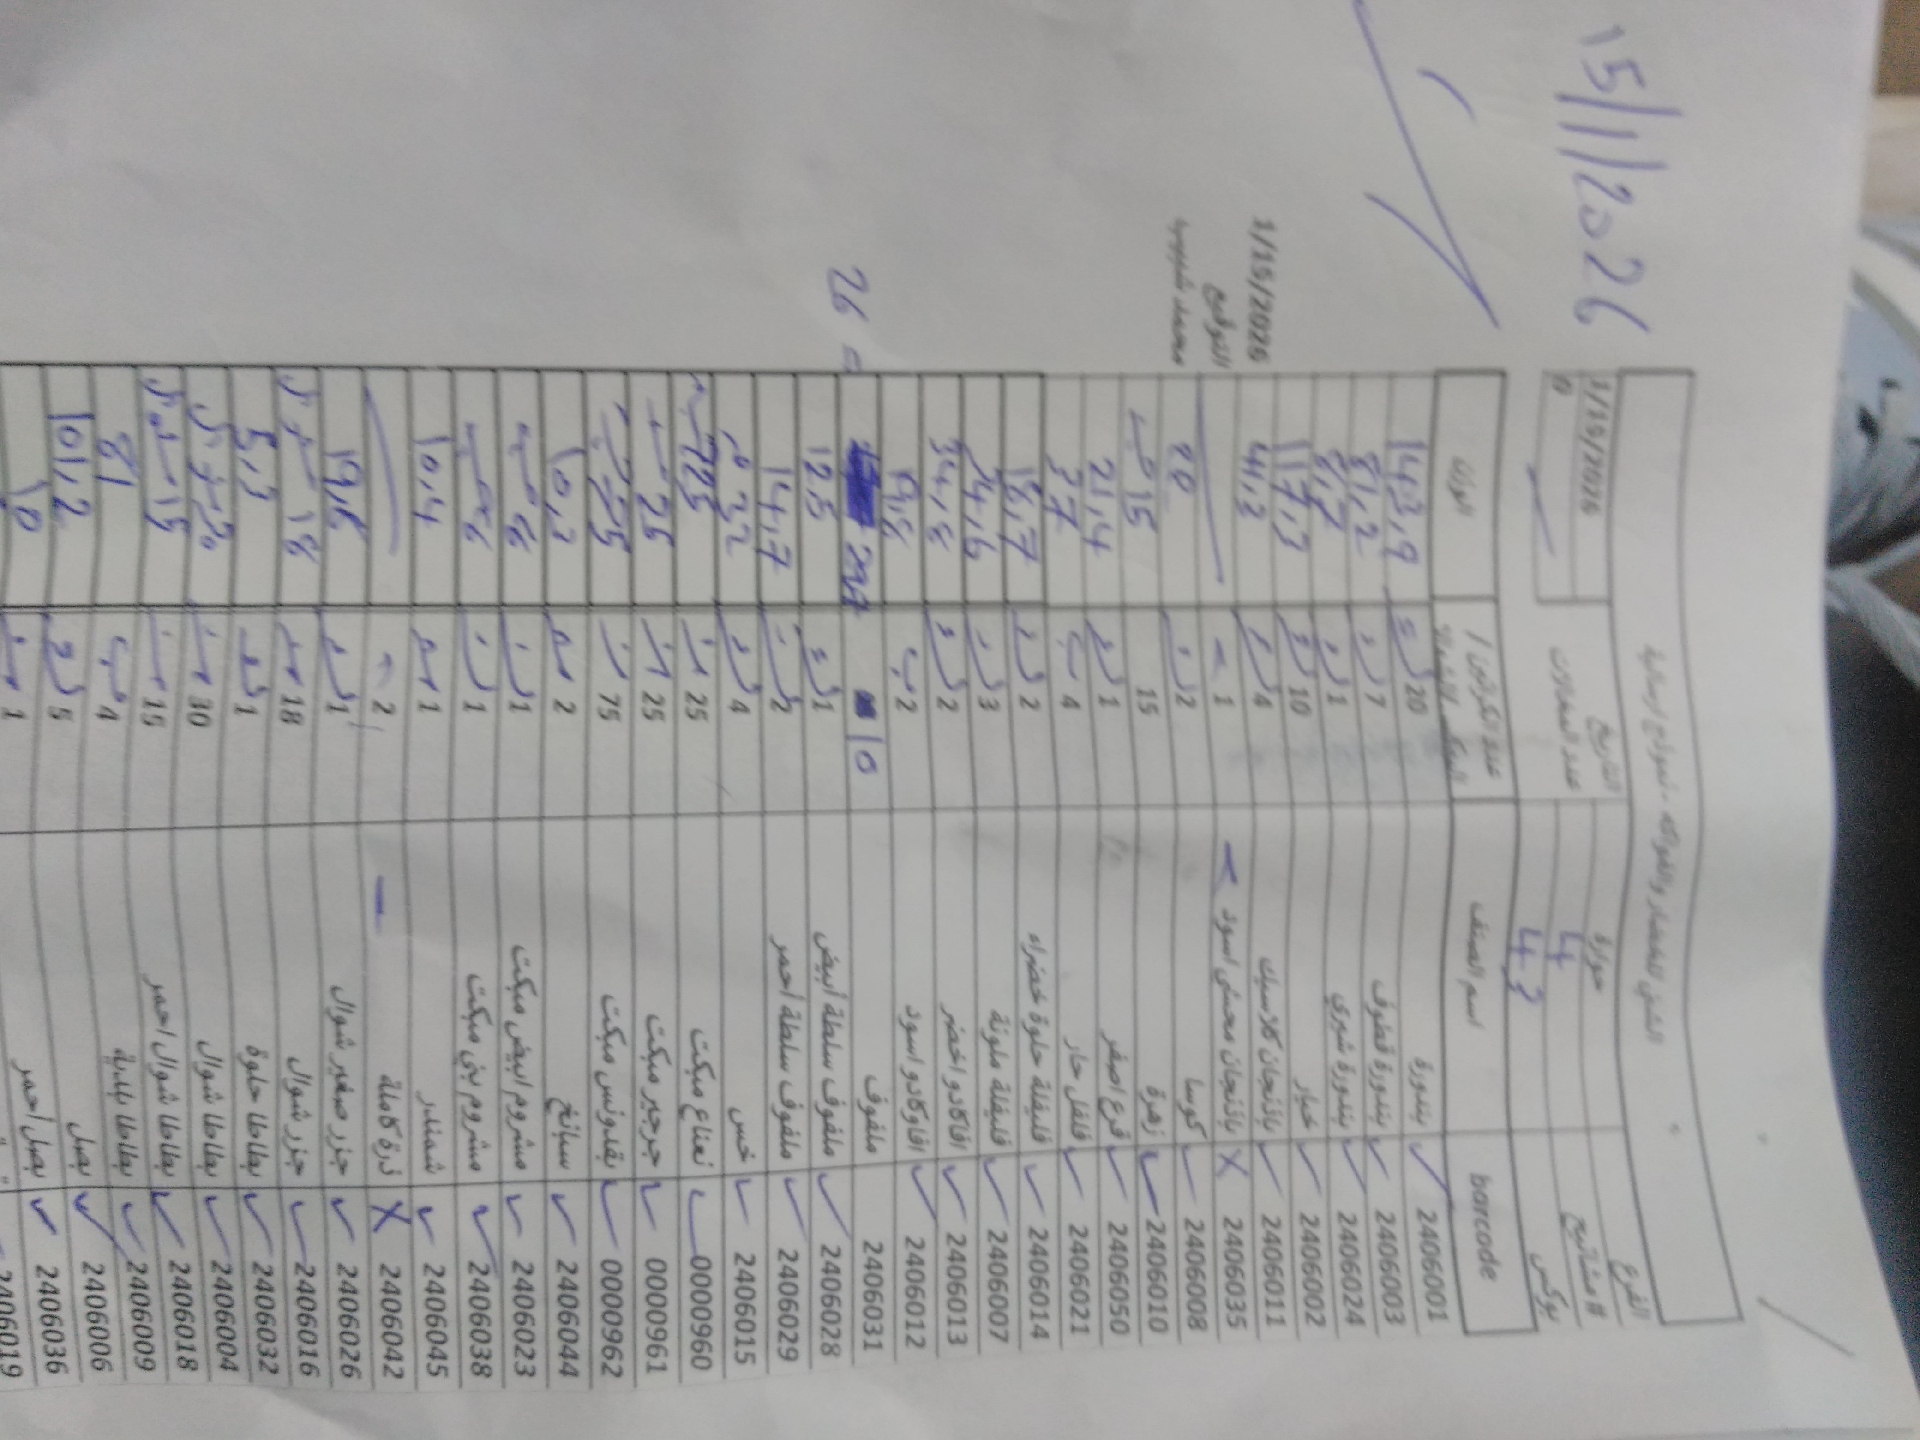 15/1/2026
الفرع حوارة التاريخ 1/15/2026
# مشاتيح 4 عدد المشالات 0
بوكس 43
barcode اسم الصنف الوزن
2406001 ✓ بندورة 20 143,9
2406003 ✓ بندورة قطوف 7 81,2
2406024 ✓ بندورة شيري 1
2406002 ✓ خيار 10 117,3
2406011 ✓ باذنجان كلاسيك 4 41,3
2406035 X باذنجان محشي اسود 1
2406008 ✓ كوسا 2 20
2406010 ✓ زهرة 15 15
2406050 ✓ قرع اصفر 1 21,4
2406021 ✓ فلفل حار 4 37
2406014 ✓ فليفلة حلوة خضراء 2 18,7
2406007 ✓ فليفلة ملونة 3 24,6
2406013 ✓ افاكادو اخضر 2 34,8
2406012 ✓ افاوكادو اسود 2 19,8
2406031 ملفوف 10 26
2406028 ✓ ملفوف سلطة ابيض 1 12,5
2406029 ✓ ملفوف سلطة احمر 2 14,7
2406015 ✓ خس 4 32
0000960 ✓ نعناع مبكت 25
0000961 ✓ جرجير مبكت 25 25
0000962 ✓ بقدونس مبكت 75
2406044 ✓ سبانخ 2 10,3
2406023 ✓ مشروم ابيض مبكت 1 6
2406038 ✓ مشروم بني مبكت 1 6
2406045 ✓ شمندر 1 10,4
2406042 X ذرة كاملة 2
2406026 ✓ جزر صغير شوال 1 19,6
2406016 ✓ جزر شوال 18 18 شوال
2406032 ✓ بطاطا حلوة 1 5,3
2406004 ✓ بطاطا شوال 30 30 شوال
2406018 ✓ بطاطا شوال احمر 15 15 شوال
2406009 ✓ بطاطا بلدية 4 81
2406006 ✓ بصل 5 101,2
2406036 ✓ بصل احمر 1 10
2406019
1/15/2026
التوقيع